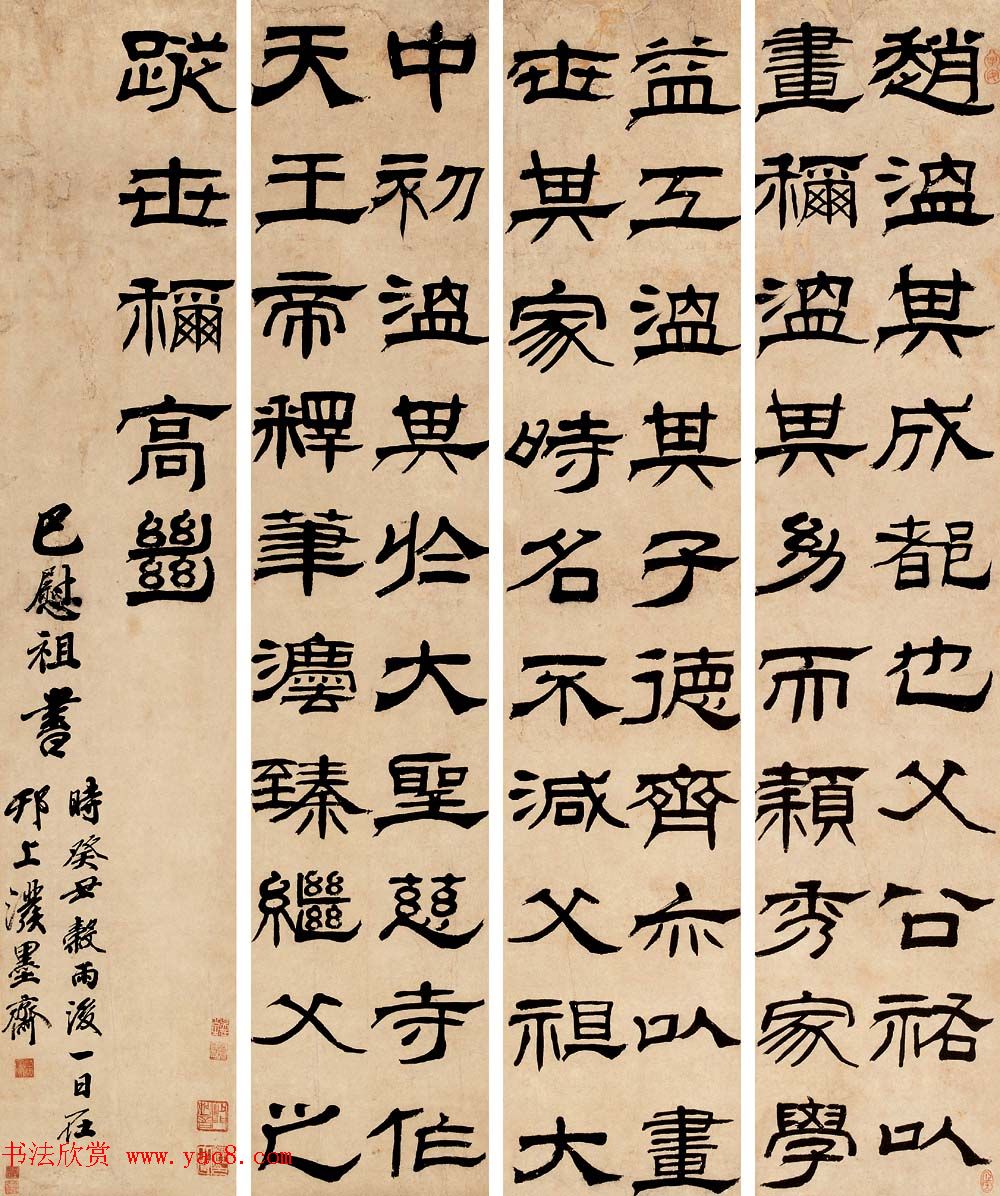 趙溫其成都也父公祐以
畫穪溫其幼而穎秀家學
益工溫其子德齊亦以畫
世其家時名不減父祖大
中初溫其於大聖慈寺作
天王帝釋筆灋臻繼父之
蹤世穪高𢇍
巴慰祖書
時癸丑穀雨後一日在
邗上潑墨齋
书法欣赏 www.yac8.com